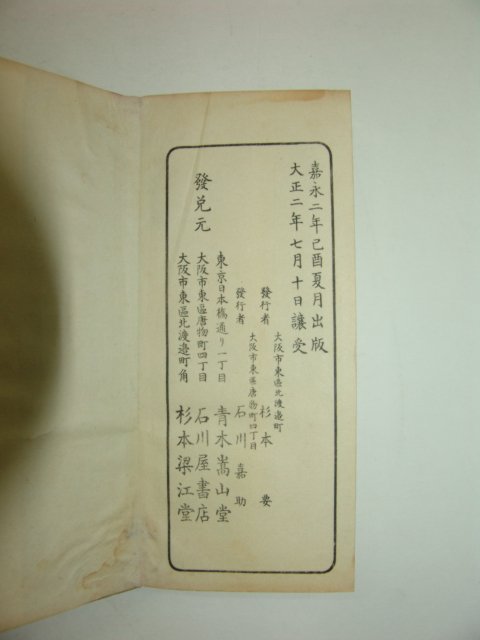 嘉永二年己酉夏月出版
大正二年七月十日讓受
大阪市東區北渡邉町
發行者 杉本 要
大阪市東區唐物町四丁目
發行者 石川嘉助
發兌元
東京日本橋通り一丁目 青木嵩山堂
大阪市東區唐物町四丁目 石川屋書店
大阪市東區北渡邉町角 杉本梁江堂